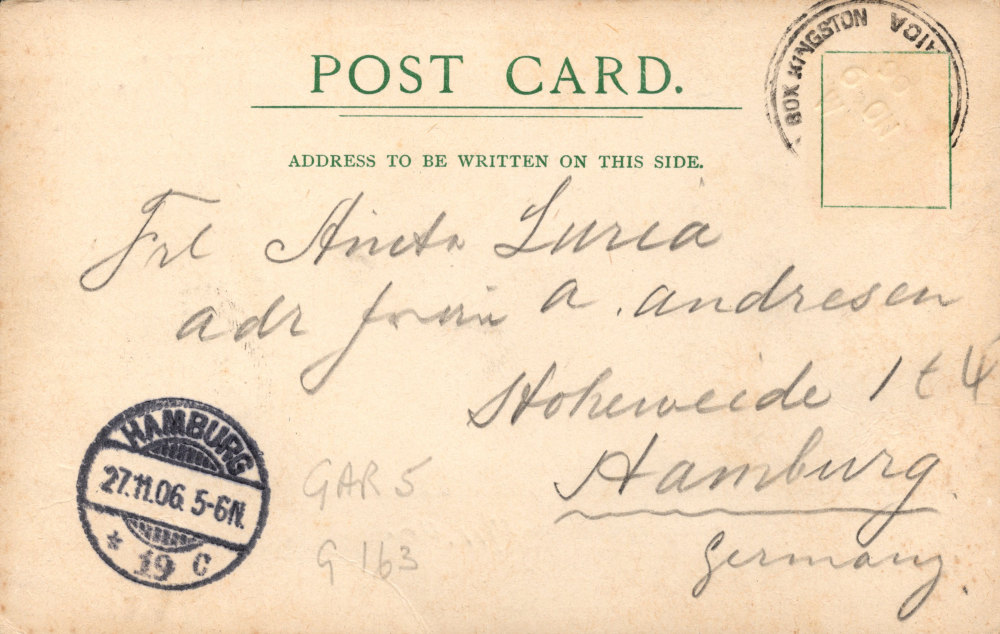 POST CARD.
ADDRESS TO BE WRITTEN ON THIS SIDE.
BOX KINGSTON
NO
Frl Aneta Luria
adr A. Andresen
Hoheweide 1 t 4
Hamburg
Germany.
HAMBURG
27.11.06. 5-6N.
* 19 C
GAR 5
G 163